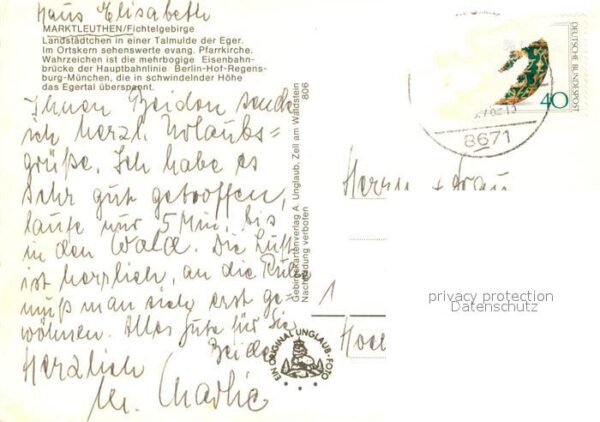 Haus Elisabeth
MARKTLEUTHEN/Fichtelgebirge
Landstädtchen in einer Talmulde der Eger.
Im Ortskern sehenswerte evang. Pfarrkirche.
Wahrzeichen ist die mehrbogige Eisenbahn-
brücke der Hauptbahnlinie Berlin-Hof-Regens-
burg-München, die in schwindelnder Höhe
das Egertal überspannt.
Ihnen Beiden sende
ich herzl. Urlaubs-
grüße. Ich habe es
sehr gut getroffen,
laufe nur 5 Min. bis
in den Wald. Die Luft
ist herrlich, an die Ruhe
muß man sich erst ge-
wöhnen. Alles Gute für Sie
Beide
Herzlich
Gebirgskartenverlag A. Unglaub, Zell am Waldstein 806
Nachbildung verboten
EIN ORIGINAL UNGLAUB-FOTO
DEUTSCHE BUNDESPOST
40
8671
Herrn + Frau
1
privacy protection
Datenschutz